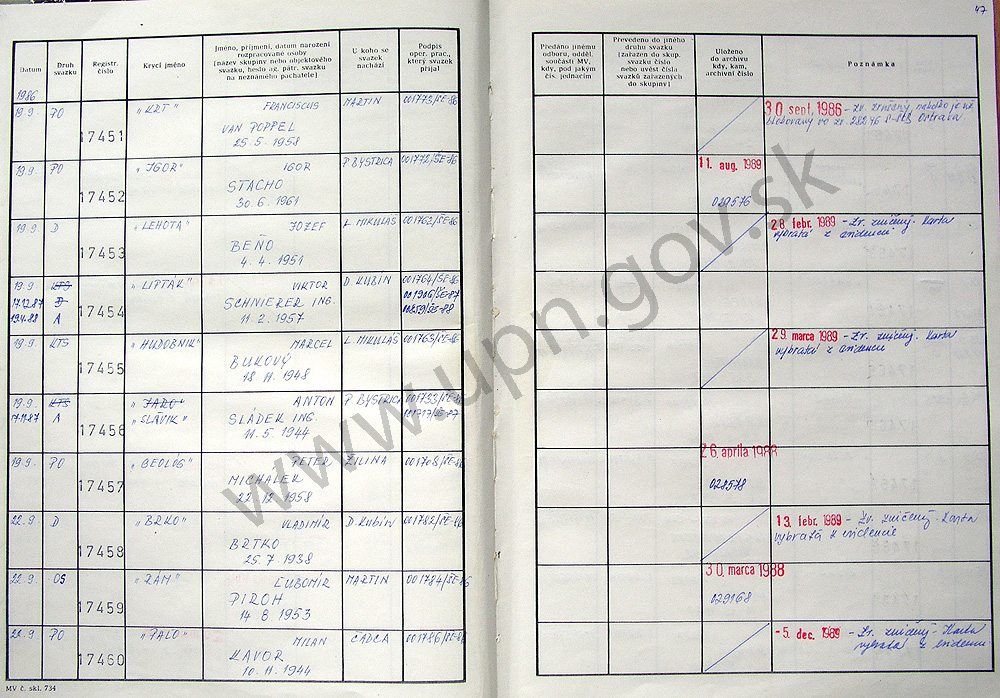 47
Datum
Druh svazku
Registr. číslo
Krycí jméno
Jméno, příjmení, datum narození rozpracované osoby
[název skupiny nebo objektového svazku, heslo ag. pátr. svazku na neznámého pachatele]
U koho se svazek nachází
Podpis oper. prac., který svazek přijal
Předáno jinému odboru, odděl. součásti MV, kdy, pod jakým čís. jednacím
Převedeno do jiného druhu svazku [zařazen do skup. svazku číslo nebo uvést čísla svazků zařazených do skupiny]
Uloženo do archivu kdy, kam, archivní číslo
Poznámka
1986
19.9. PO 17451 "KRT" FRANCISCUS MARTIN 001773/ŠE-86
VAN POPPEL
25.5.1958
30. sept. 1986 - Zv. zničený, nakoľko je už
blokovaný vo zv. 28246 Ostrava.
19.9. PO 17452 "IGOR" IGOR P. BYSTRICA 001772/ŠE-86
STACHO
30.6.1961
11. aug. 1989
029576
19.9. D 17453 "LEHOTA" JOZEF L. MIKULÁŠ 001762/ŠE-86
BEŇO
4.4.1951
28. febr. 1989 - Zv. zničený. Karta
vybratá z evidencií
19.9. KTS 17454 "LIPTÁK" VIKTOR D. KUBÍN 001764/ŠE-86
17.12.87 D SCHNIERER ING. 001906/ŠE-87
19.4.88 A 11.2.1957 00859/ŠE-88
19.9. KTS 17455 "HUDOBNIK" MARCEL L. MIKULÁŠ 001763/ŠE-86
BUKOVÝ
18.11.1948
29. marca 1989 - Zv. zničený. Karta
vybratá z evidencie
19.9. KTS 17456 "JARO" ANTON P. BYSTRICA 001733/ŠE-86
17.11.87 A "SLÁVIK" SLÁDEK ING 001717/ŠE-87
11.5.1944
19.9. PO 17457 "BEOLÓG" PETER ŽILINA 001708/ŠE-86
MICHALEK
22.12.1958
26. apríla 1988
028578
22.9. D 17458 "BRKO" VLADIMÍR D. KUBÍN 001782/ŠE-86
BRTKO
25.7.1938
13. febr. 1989 - Zv. zničený. Karta
vybratá z evidencie
22.9. OS 17459 "RÁM" ĽUBOMÍR MARTIN 001784/ŠE-86
PIROH
14.8.1953
30. marca 1988
029168
22.9. PO 17460 "PALO" MILAN ČADCA 001786/ŠE-86
KAVOR
10.11.1944
-5. dec. 1989 - Zv. zničený. Karta
vybratá z evidencie
MV č. skl. 734
www.upn.gov.sk